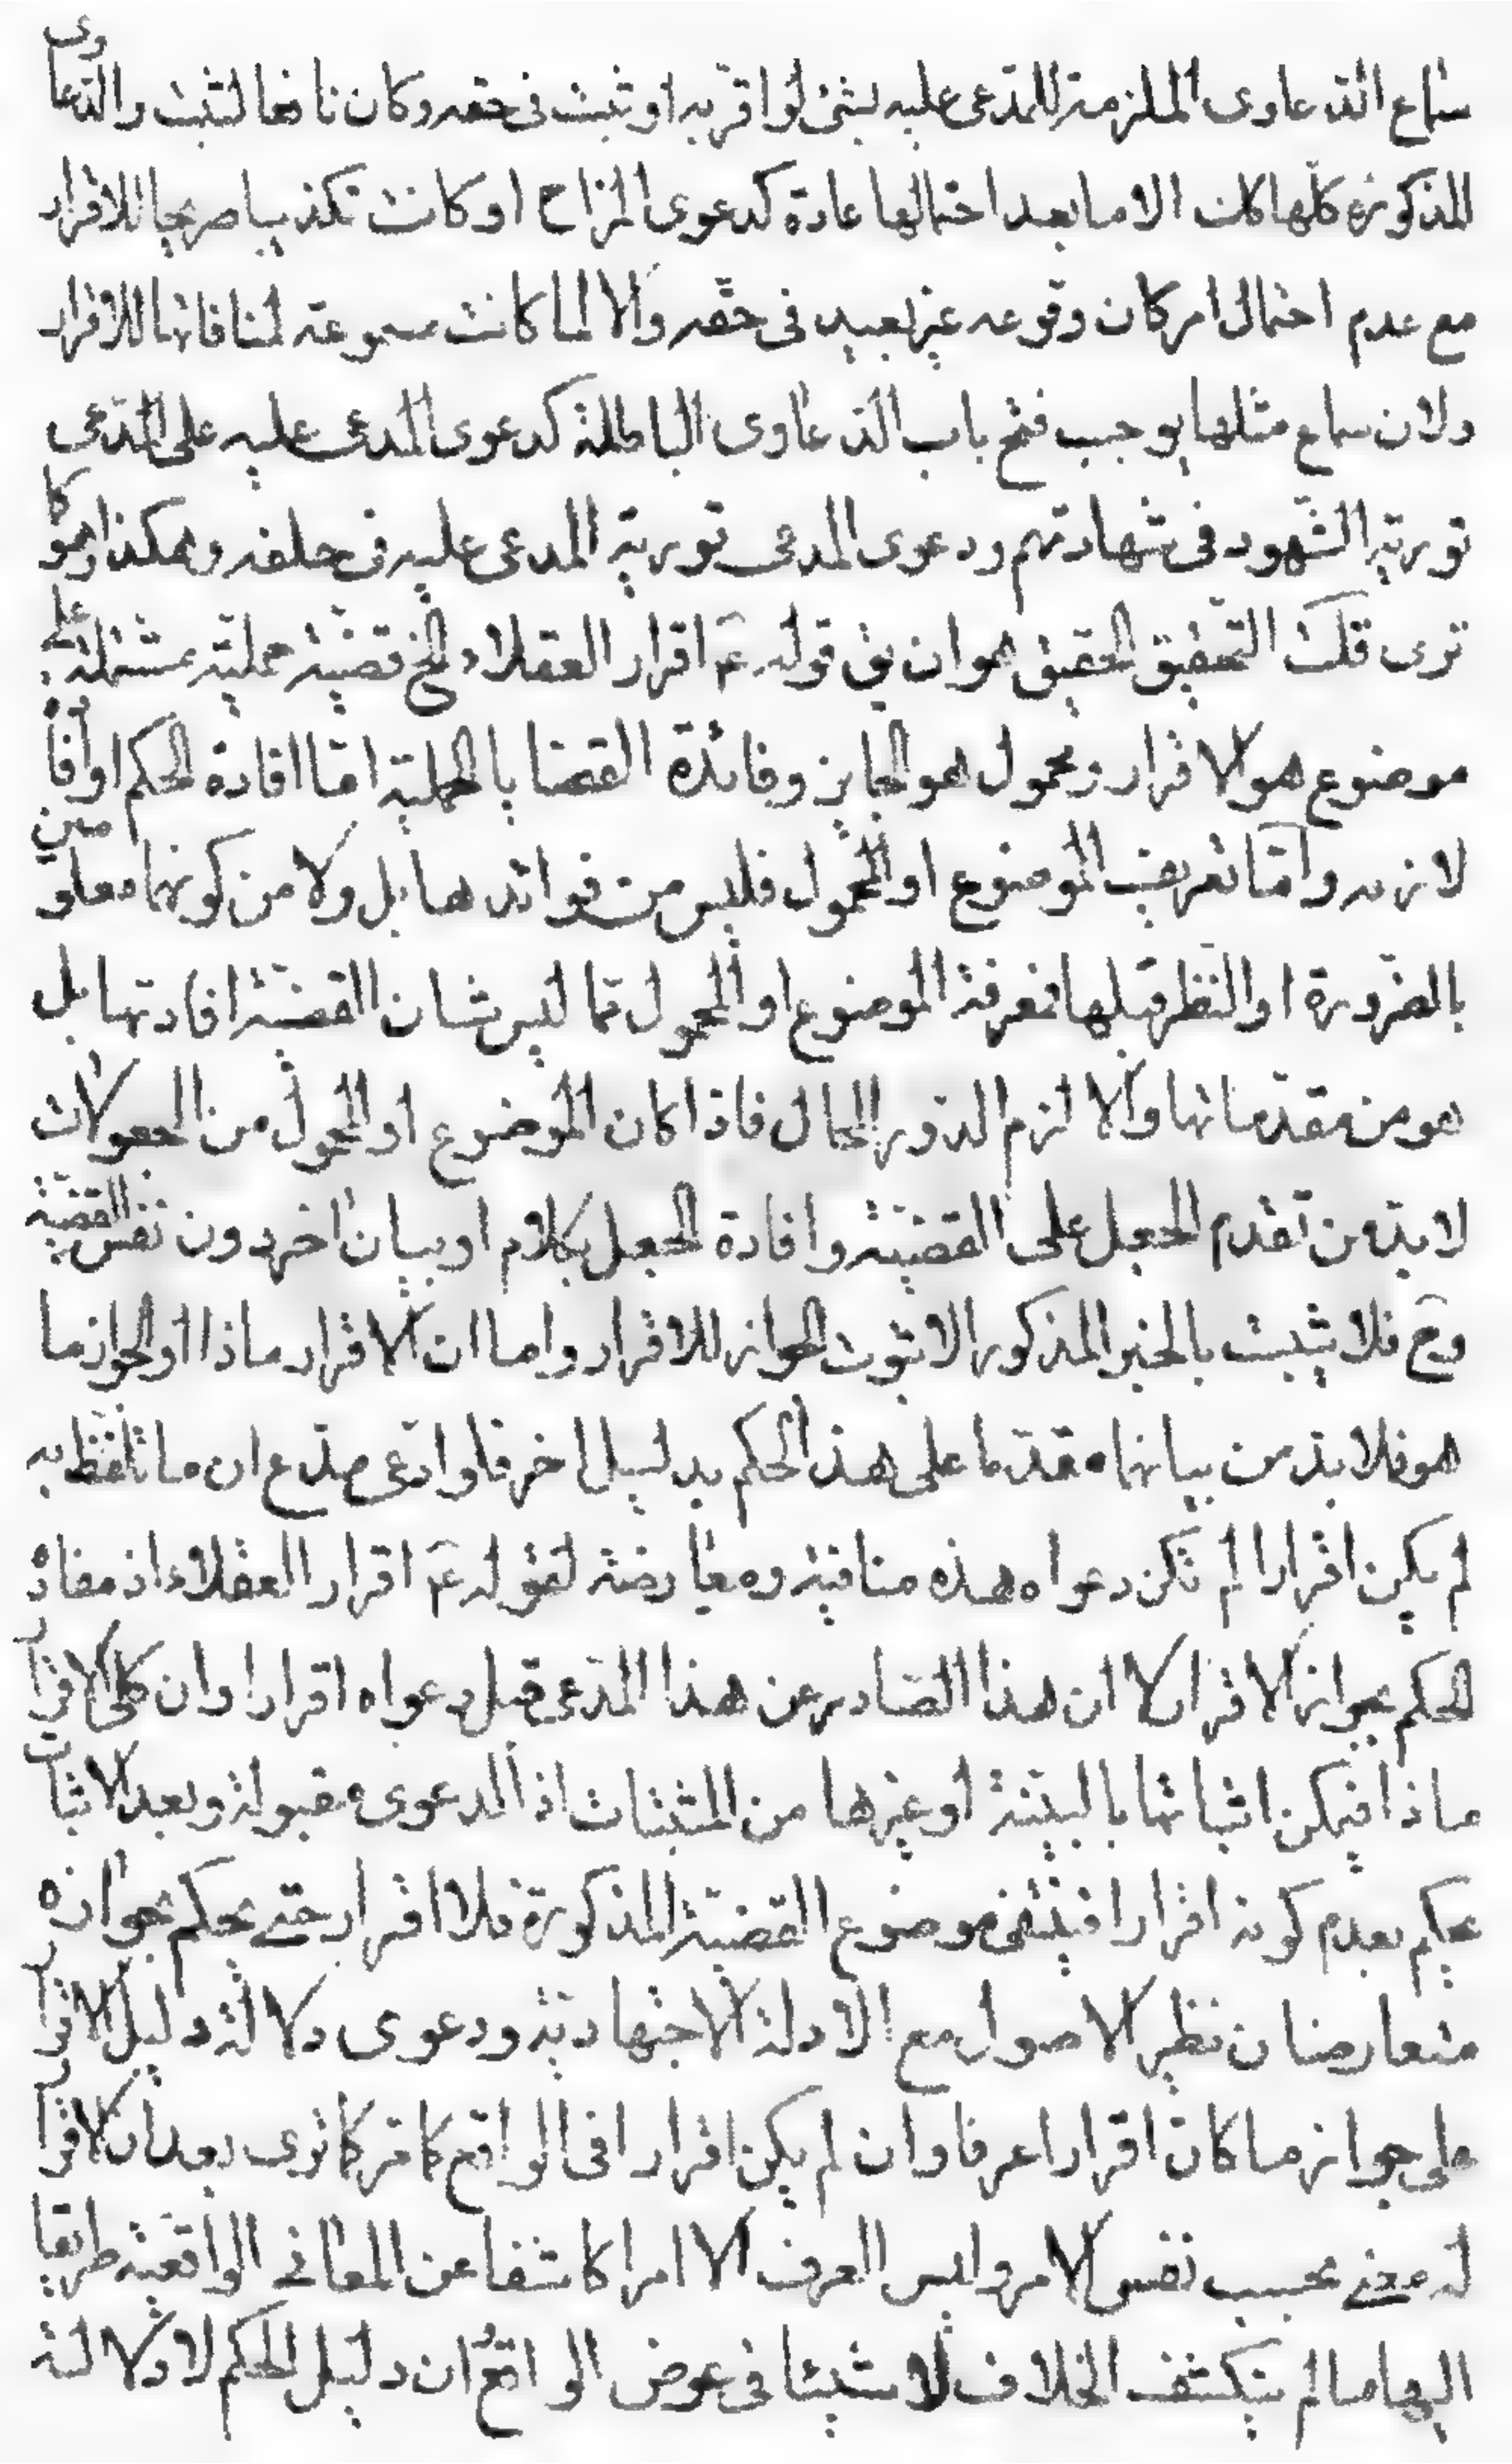 سماع الدعاوى الملزمة للمدّعى عليه بشئ لو اقرّ به او ثبت فى حقه وكان نافعا لثبت والدّعاوى
المذكورة كلّها كك الا ما بعد احتمالها عادة كدعوى المزاح او كانت تكذيبا صريحا للاقرار
مع عدم احتمال امر كان وقوعه غير بعيد فى حقّه والا لما كانت مسموعة لمنافاتها للاقرار
ولان سماع مثلها يوجب فتح باب الدّعاوى الباطلة كدعوى المدعى عليه على المدّعى
تورية الشّهود فى شهادتهم ودعوى المدعى تورية المدعى عليه فى حلفه وهكذا وهو كما
ترى قلت التّحقيق الحقيق هو ان يق قوله عَم اقرار العقلاء الخ قضيّة حمليّة مشتملة على
موضوع هو الاقرار ومحمول هو الجايز وفائدة القضايا الحملية امّا افادة الحكم او افادة
لازمه وامّا تعريف الموضوع او المحمول فليس من فوائدها بل ولا من كونهما معلومين
بالضّرورة او النّظر قبلها فمعرفة الموضوع او المحمول ممّا ليس شان القضيّة افادتها بل
هو من مقدّماتها والا لزم الدّور المحال فاذا كان الموضوع او المحمول من المجعولات
لا بدّ من تقدم الجعل على القضيّة وافادة الجعل بكلام او بيان اخر دون نفس القضيّة
وح فلا يثبت بالخبر المذكور الا ثبوت الجواز للاقرار واما ان الاقرار ماذا او الجواز ما
هو فلا بدّ من بيانهما مقدّما على هذا الحكم بدليل اخر فلو ادّعى مدّع ان ما تلفّظ به
لم يكن اقرارا لم تكن دعواه هذه منافية ومعارضة لقوله عَم اقرار العقلاء اذ مفاد
الحكم بجواز الاقرار لا ان هذا الصّادر عن هذا المدّعى قبل دعواه اقرار او ان كلى الاقرار
ماذا فيمكن اثباتها بالبيّنة او غيرها من المثبتات اذ الدعوى مقبولة وبعد الاثبات
يحكم بعدم كونه اقرارا فينتفى موضوع القضيّة المذكورة فلا اقرار حتى يحكم بجوازه
متعارضان نظير الاصول مع الادلة الاجتهاديّة ودعوى دلالة دليل الاقرار
على جواز ما كان اقرارا عرفا وان لم يكن اقرارا فى الواقع كما مر كما ترى بعد ان الاقرار
له معنى بحسب نفس الامر وليس العرف الا امرا كاشفا عن المعانى الواقعية طريقا
اليها ما لم ينكشف الخلاف لا شيئا فى عوض الواقع ان دليل الحكم لا دلالة